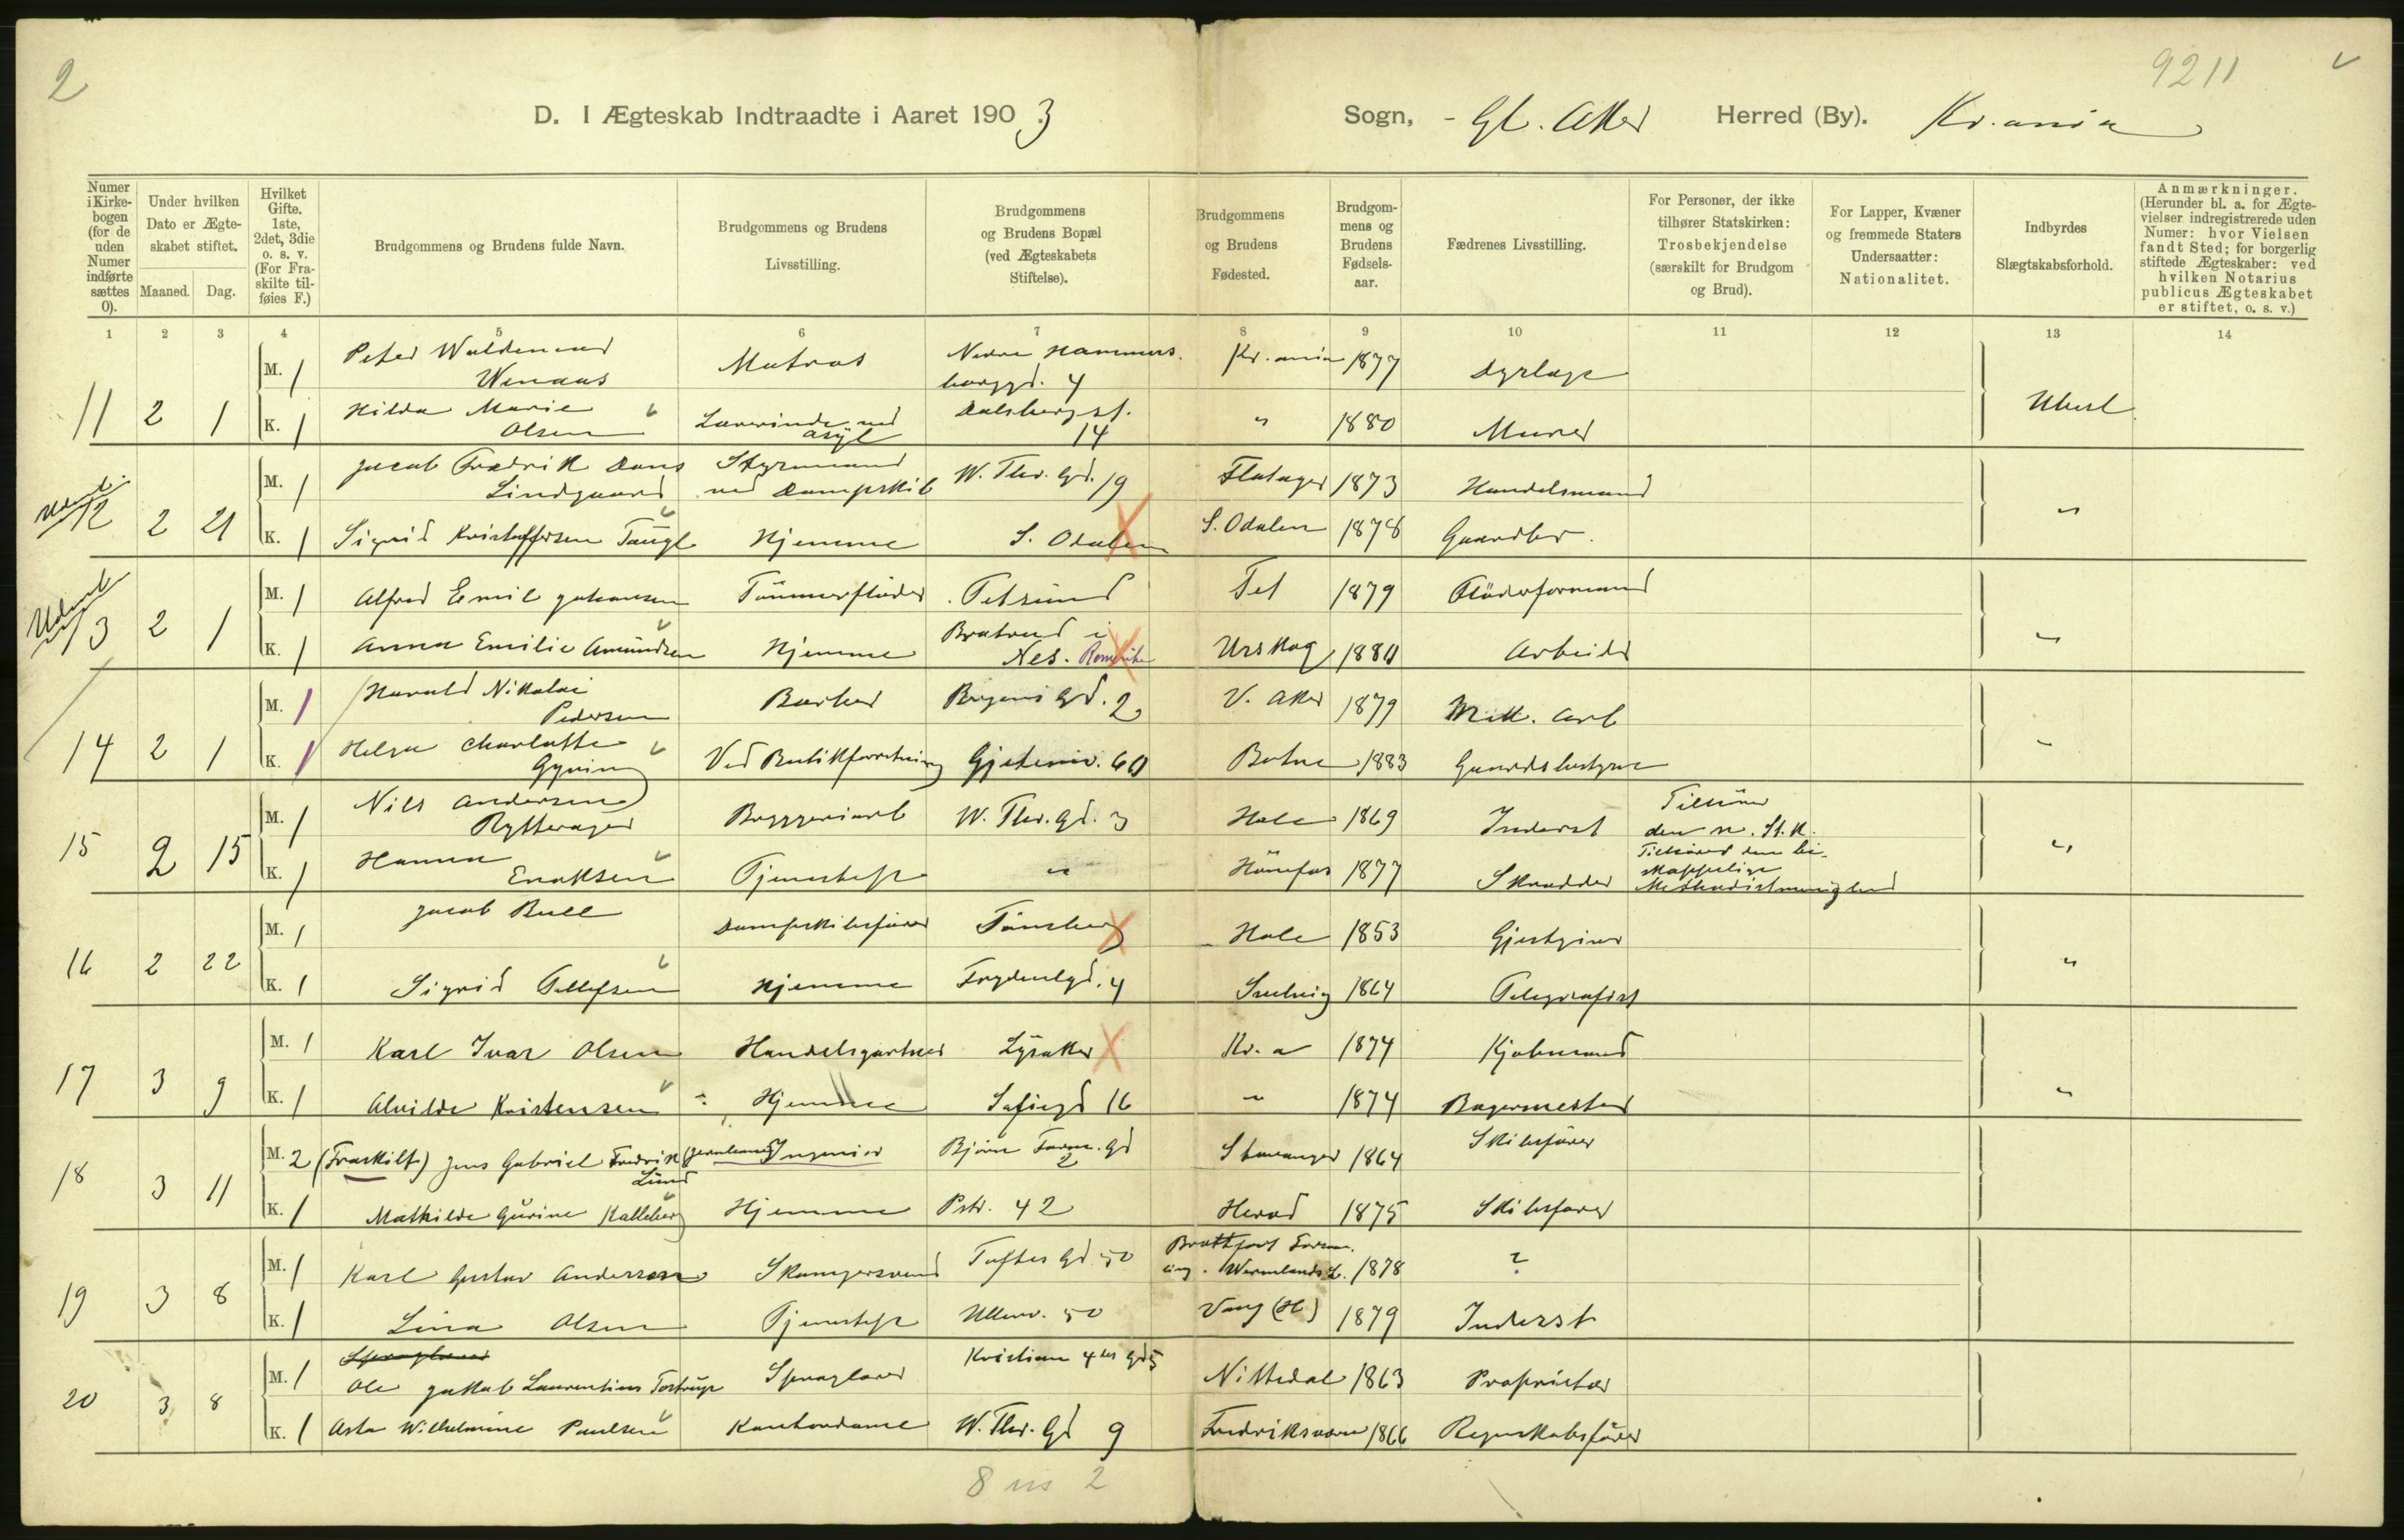 2
9211
D. I Ægteskab Indtraadte i Aaret 1903
Sogn, - Gl. Aker Herred (By). Kr.ania
Numer i Kirke-bogen (for de uden Numer indførte sættes 0).
Under hvilken Dato er Ægte-skabet stiftet.
Maaned. Dag.
Hvilket Gifte. 1ste, 2det, 3die o. s. v. (For Fra-skilte til-føies F.)
Brudgommens og Brudens fulde Navn.
Brudgommens og Brudens Livsstilling.
Brudgommens og Brudens Bopæl (ved Ægteskabets Stiftelse).
Brudgommens og Brudens Fødested.
Brudgom-mens og Brudens Fødsels-aar.
Fædrenes Livsstilling.
For Personer, der ikke tilhører Statskirken: Trosbekjendelse (særskilt for Brudgom og Brud).
For Lapper, Kvæner og fremmede Staters Undersaatter: Nationalitet.
Indbyrdes Slægtskabsforhold.
Anmærkninger. (Herunder bl. a. for Ægte-vielser indregistrerede uden Numer: hvor Vielsen fandt Sted; for borgerlig stiftede Ægteskaber: ved hvilken Notarius publicus Ægteskabet er stiftet, o. s. v.)
1 2 3 4 5 6 7 8 9 10 11 12 13 14
M. 1 Peter Waldemar Wenaas Matros Nedre Hammers-borggd. 4 Kr.ania 1877 Dyrlæge
11 2 1 K. 1 Hilda Marie Olsen Lærerinde ved asyl Dalsbergst. 14 " 1880 Murer Ubesl.
M. 1 Jacob Fredrik Dons Lindgaard Styrmand ved Dampskib W. Thr. Gd. 19 Flatager 1873 Handelsmand
12 2 21 K. 1 Sigrid Kristoffersen Hjemme S. Odalen S. Odalen 1878 Gaardbr. "
M. 1 Alfred Emil Johansen Tømmerfløder Fetsund Fet 1879 Fløderformand
13 2 1 K. 1 Anna Emilie Amundsen Hjemme i Nes. Romerike Urskog 1880 Arbeider "
M. 1 Harald Nikolai Pedersen Barber Gd. 2 V. Aker 1879 Arb
14 2 1 K. 1 Helga Charlotte Ved Butikforretning Gjetemv. 60 Botne 1883 Gaardsbestyrer "
M. 1 Nils Andersen Rytterager Bryggeriarb W. Thr. Gd. 3 Hole 1869 Inderst Tilhører den n. St. K.
15 2 15 K. 1 Hanna Enoksen Tjenestepe " Hønefos 1877 Skrædder Tilhører den bi-skoppelige Methodistmenighed "
M. 1 Jacob Bull Dampskibsfører Tønsberg Hole 1853 Gjestgiver
16 2 22 K. 1 Sigrid Tellefsen Hjemme Frydenlgd. 4 Svelvig 1864 Telegrafist "
M. 1 Karl Ivar Olsen Handelsgartner Lysaker Kr.a 1874 Kjøbmand
17 3 9 K. 1 Alvilde Kristensen Hjemme Sofiegd 16 " 1874 Bagermester "
M. 2 (Fraskilt) Jens Gabriel Fredrik Lund Ingeniør Bjørn Farm. Gd 2 Stavanger 1864 Skibsfører
18 3 11 K. 1 Mathilde Gurine Kalleberg Hjemme Pstr. 42 Herad 1875 Skibsfører
M. 1 Karl Gustav Andersson Skomgersvend Toftes Gd. 50 Brattfors Försam-ling. Wermlands L. 1878 ?
19 3 8 K. 1 Lina Olsen Tjenestepe Ullev. 50 Vang (H) 1879 Inderst
M. 1 Ole Jakob Laurentius Tostrup Sproglærer Kristian 4des Gd 5 Nittedal 1863 Proprietær
20 3 8 K. 1 Asta Wilhelmine Paulsen Kontordame W. Thr. Gd 9 Fredriksværn 1866 Regnskabsfører
8 2